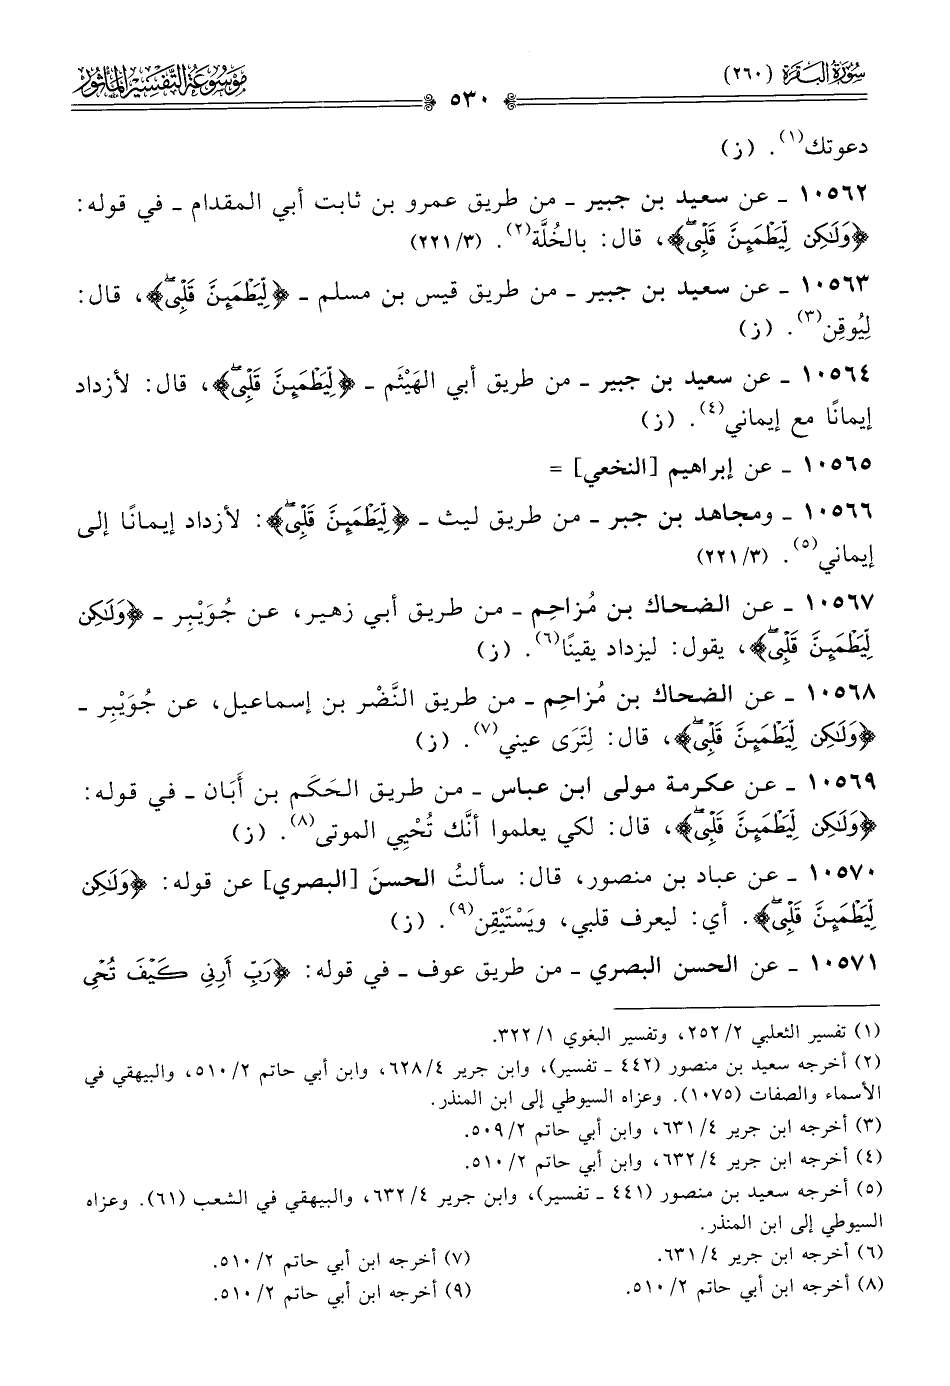 سُورَةُ البَقَرَةِ (٢٦٠)
٥٣٠
مَوْسُوعَةُ التَّفْسِيرِ المَأْثُورِ
دعوتك(١). (ز)
١٠٥٦٢ ـ عن سعيد بن جبير ـ من طريق عمرو بن ثابت أبي المقدام ـ في قوله:
﴿وَلَٰكِن لِّيَطْمَئِنَّ قَلْبِىۖ﴾، قال: بالخُلَّة(٢). (٣/ ٢٢١)
١٠٥٦٣ ـ عن سعيد بن جبير ـ من طريق قيس بن مسلم ـ ﴿لِّيَطْمَئِنَّ قَلْبِىۖ﴾، قال:
لِيُوقِن(٣). (ز)
١٠٥٦٤ ـ عن سعيد بن جبير ـ من طريق أبي الهَيْثَم ـ ﴿لِّيَطْمَئِنَّ قَلْبِىۖ﴾، قال: لأزداد
إيمانًا مع إيماني(٤). (ز)
١٠٥٦٥ ـ عن إبراهيم [النخعي] =
١٠٥٦٦ ـ ومجاهد بن جبر ـ من طريق ليث ـ ﴿لِّيَطْمَئِنَّ قَلْبِىۖ﴾: لأزداد إيمانًا إلى
إيماني(٥). (٣/ ٢٢١)
١٠٥٦٧ ـ عن الضحاك بن مُزاحِم ـ من طريق أبي زهير، عن جُوَيْبِر ـ ﴿وَلَٰكِن
لِّيَطْمَئِنَّ قَلْبِىۖ﴾، يقول: ليزداد يقينًا(٦). (ز)
١٠٥٦٨ ـ عن الضحاك بن مُزاحِم ـ من طريق النَّضْر بن إسماعيل، عن جُوَيْبِر ـ
﴿وَلَٰكِن لِّيَطْمَئِنَّ قَلْبِىۖ﴾، قال: لِتَرَى عيني(٧). (ز)
١٠٥٦٩ ـ عن عكرمة مولى ابن عباس ـ من طريق الحَكَم بن أَبَان ـ في قوله:
﴿وَلَٰكِن لِّيَطْمَئِنَّ قَلْبِىۖ﴾، قال: لكي يعلموا أنَّك تُحْيِي الموتى(٨). (ز)
١٠٥٧٠ ـ عن عباد بن منصور، قال: سألتُ الحسنَ [البصري] عن قوله: ﴿وَلَٰكِن
لِّيَطْمَئِنَّ قَلْبِىۖ﴾. أي: ليعرف قلبي، ويَسْتَيْقِن(٩). (ز)
١٠٥٧١ ـ عن الحسن البصري ـ من طريق عوف ـ في قوله: ﴿رَبِّ أَرِنِي كَيْفَ تُحْيِ
(١) تفسير الثعلبي ٢/ ٢٥٢، وتفسير البغوي ١/ ٣٢٢.
(٢) أخرجه سعيد بن منصور (٤٤٢ ـ تفسير)، وابن جرير ٤/ ٦٢٨، وابن أبي حاتم ٢/ ٥١٠، والبيهقي في
الأسماء والصفات (١٠٧٥). وعزاه السيوطي إلى ابن المنذر.
(٣) أخرجه ابن جرير ٤/ ٦٣١، وابن أبي حاتم ٢/ ٥٠٩.
(٤) أخرجه ابن جرير ٤/ ٦٣٢، وابن أبي حاتم ٢/ ٥١٠.
(٥) أخرجه سعيد بن منصور (٤٤١ ـ تفسير)، وابن جرير ٤/ ٦٣٢، والبيهقي في الشعب (٦١). وعزاه
السيوطي إلى ابن المنذر.
(٦) أخرجه ابن جرير ٤/ ٦٣١.
(٧) أخرجه ابن أبي حاتم ٢/ ٥١٠.
(٨) أخرجه ابن أبي حاتم ٢/ ٥١٠.
(٩) أخرجه ابن أبي حاتم ٢/ ٥١٠.